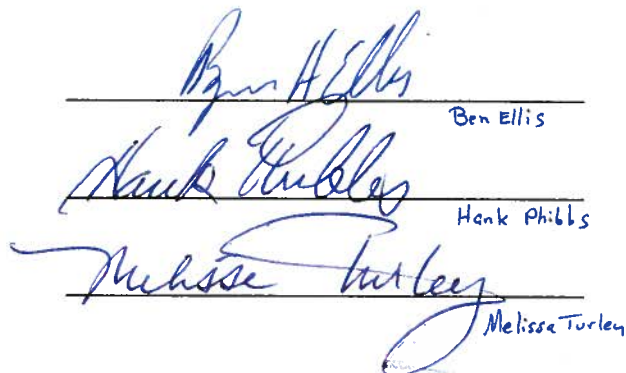 Ben H Ellis
Ben Ellis
Hank Phibbs
Hank Phibbs
Melissa Turley
Melissa Turley